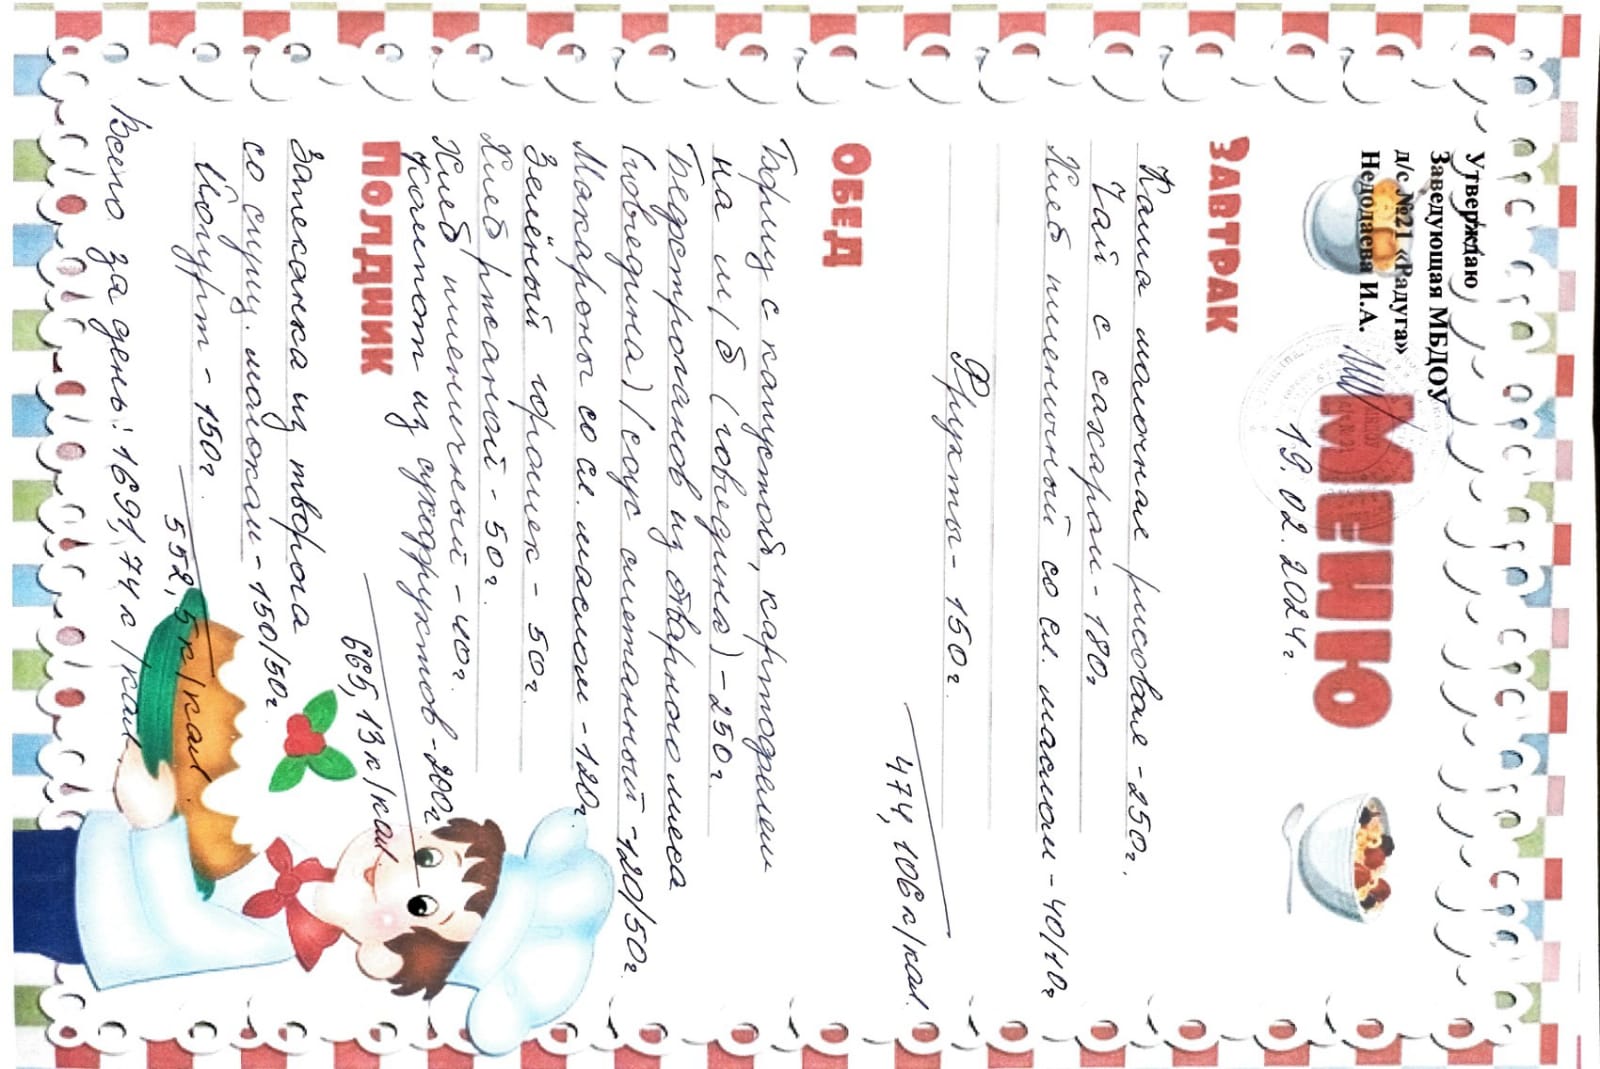 Утверждаю
Заведующая МБДОУ
д/с №21 «Радуга»
Недодаева И.А.
Меню
19.02.2024г.
Завтрак
Каша молочная рисовая - 250г.
Чай с сахаром - 180г
Хлеб пшеничный со сл. маслом - 40/10г
Фрукты - 150г.
474,106 к/кал.
Обед
Борщ с капустой, картофелем
на м/б (говядина) - 250г.
Бефстроганов из отварного мяса
(говядина)/соус сметанный - 120/50г.
Макароны со сл. маслом - 120г.
Зелёный горошек - 50г
Хлеб ржаной - 50г.
Хлеб пшеничный - 40г.
Компот из сухофруктов - 200г
665,13 к/кал.
Полдник
Запеканка из творога
со сгущ. молоком - 150/50г.
Йогурт - 150г.
552,5 к/кал
Всего за день: 1691,74 к/кал.